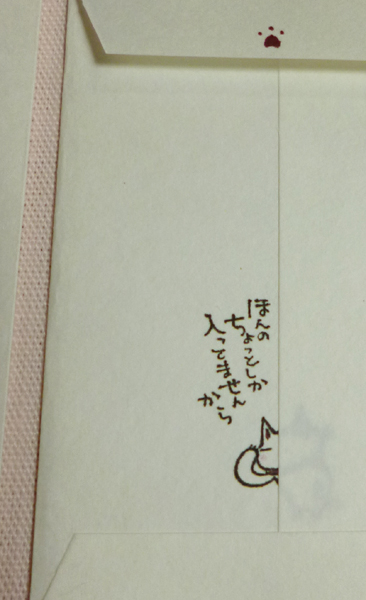 ほんの
ちょっとしか
入ってません
から